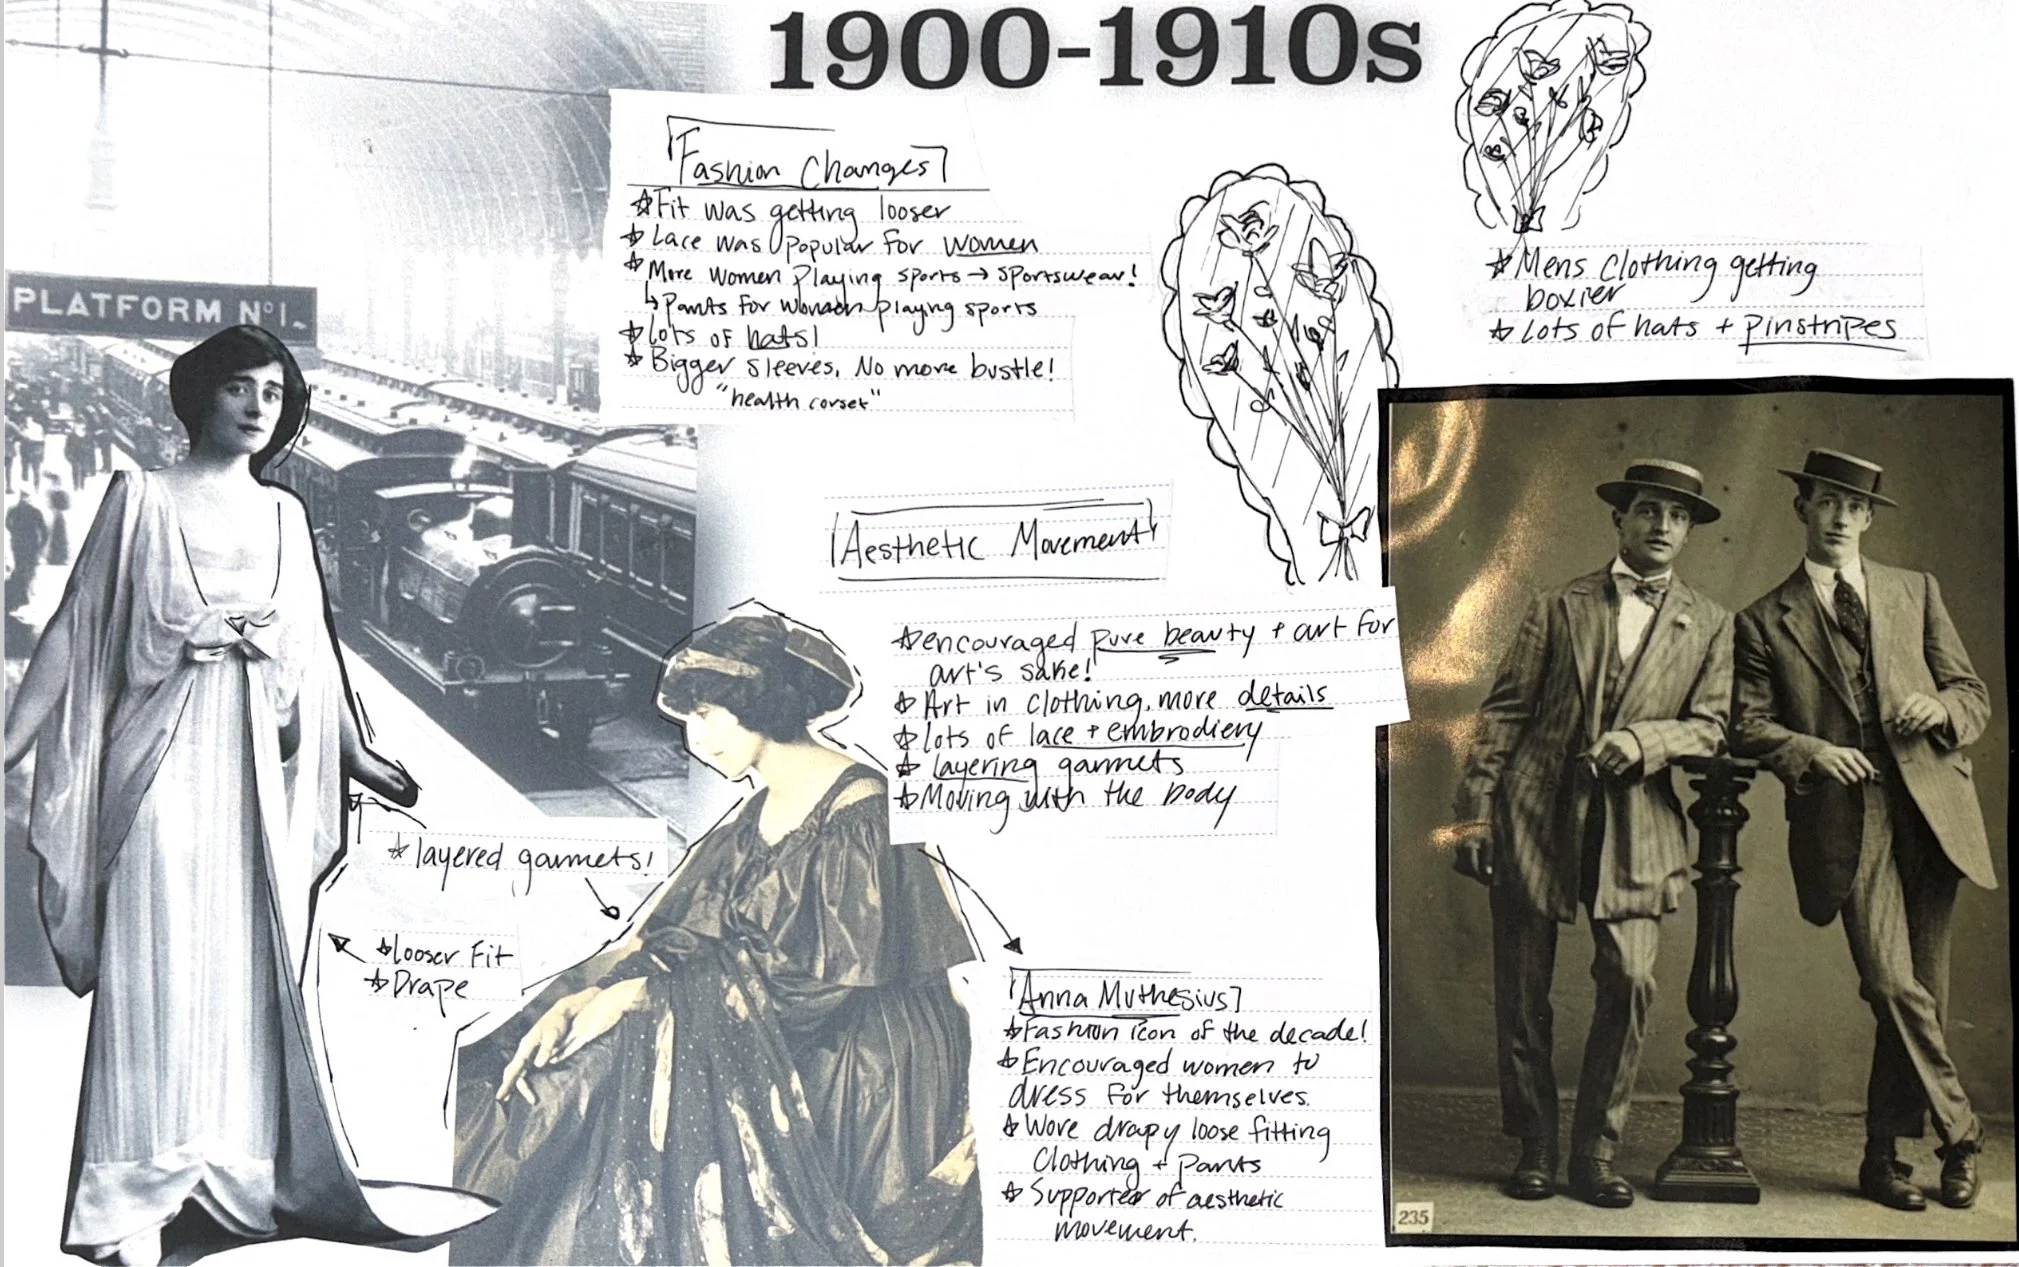 1900-1910s
Fashion Changes
☆Fit was getting looser
☆Lace was popular for women
☆More women playing sports → sportswear!
↳Pants for women playing sports
☆lots of hats!
☆Bigger sleeves. No more bustle!
"health corset"
☆Mens clothing getting
boxier
☆lots of hats + pinstripes
PLATFORM Nº1.
Aesthetic Movement
☆encouraged pure beauty + art for
art's sake!
☆Art in clothing, more details
☆lots of lace + embrodiery
☆layering garmets
☆Moving with the body
☆layered garmets!
☆looser fit
☆Drape
Anna Muthesius
☆Fashion icon of the decade!
☆Encouraged women to
dress for themselves.
☆Wore drapy loose fitting
clothing + pants
☆Supporter of aesthetic
movement.
235